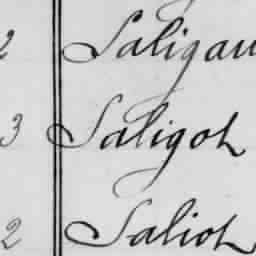 2 Saligau
3 Saligot
2 Saliot